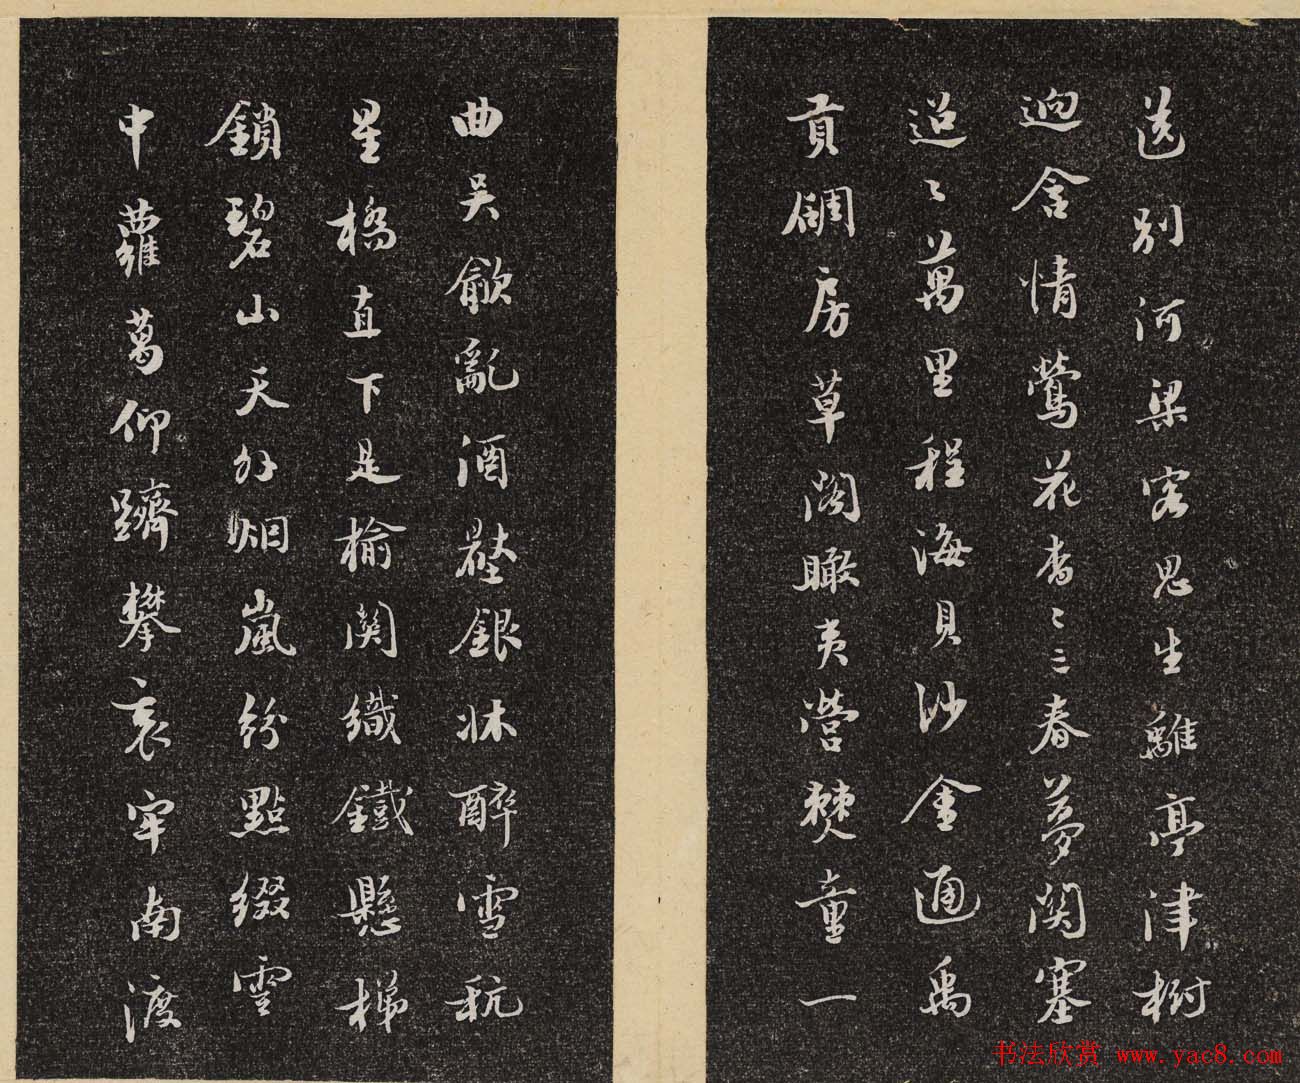 送別河梁客思生離亭津樹
迥含情鶯花杳々三春夢関塞
迢々萬里程海貝沙金通禹
貢碉房草閣瞰夷營僰童一
曲吳歈亂酒壓銀牀醉雪秔
星橋直下是榆関織鐵懸梯
鎖碧山天外烟嵐紛點綴雲
中蘿葛仰躋攀哀牢南渡
书法欣赏 www.yac8.com